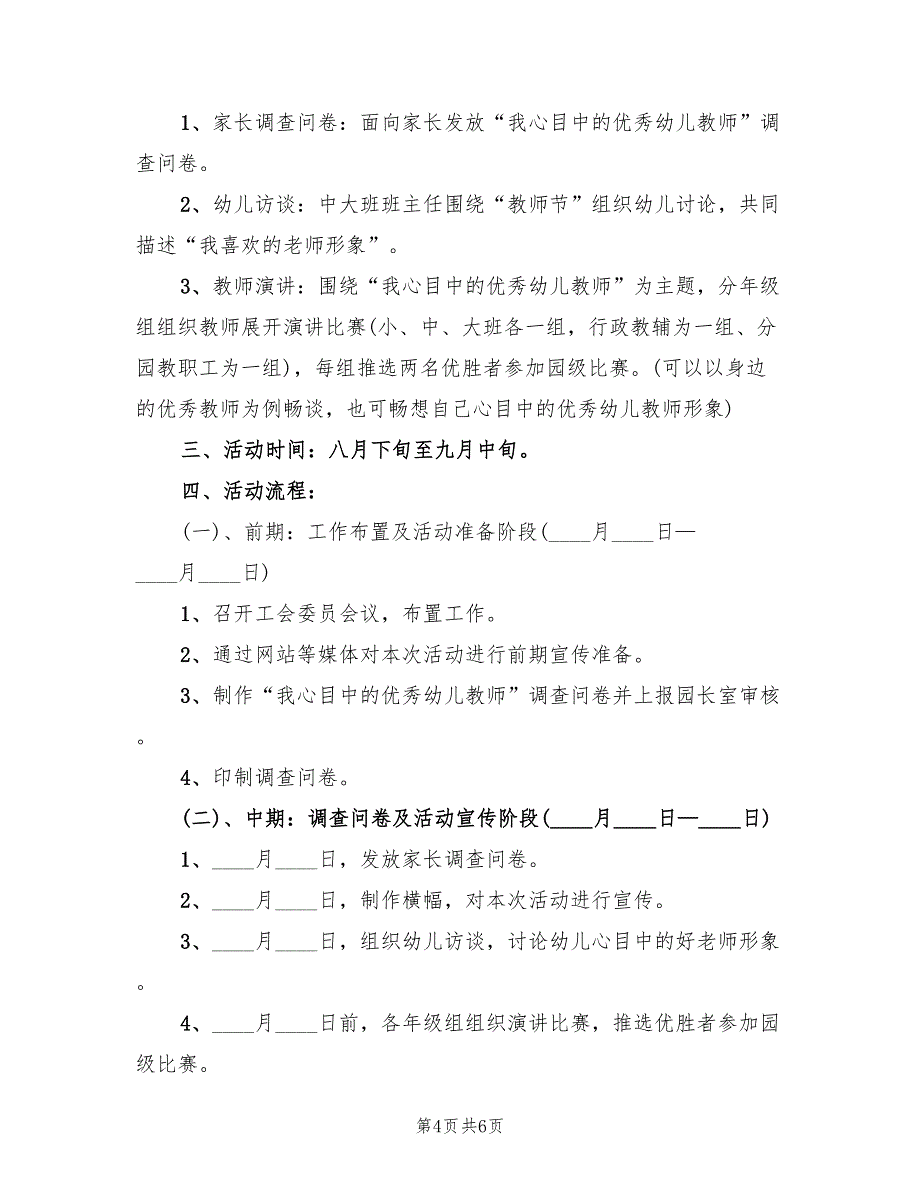 1、家长调查问卷：面向家长发放“我心目中的优秀幼儿教师”调
查问卷。
2、幼儿访谈：中大班班主任围绕“教师节”组织幼儿讨论，共同
描述“我喜欢的老师形象”。
3、教师演讲：围绕“我心目中的优秀幼儿教师”为主题，分年级
组组织教师展开演讲比赛(小、中、大班各一组，行政教辅为一组、分
园教职工为一组)，每组推选两名优胜者参加园级比赛。(可以以身边
的优秀教师为例畅谈，也可畅想自己心目中的优秀幼儿教师形象)
三、活动时间：八月下旬至九月中旬。
四、活动流程：
(一)、前期：工作布置及活动准备阶段(____月____日—
____月____日)
1、召开工会委员会议，布置工作。
2、通过网站等媒体对本次活动进行前期宣传准备。
3、制作“我心目中的优秀幼儿教师”调查问卷并上报园长室审核
。
4、印制调查问卷。
(二)、中期：调查问卷及活动宣传阶段(____月____日—____日)
1、____月____日，发放家长调查问卷。
2、____月____日，制作横幅，对本次活动进行宣传。
3、____月____日，组织幼儿访谈，讨论幼儿心目中的好老师形象
。
4、____月____日前，各年级组组织演讲比赛，推选优胜者参加园
级比赛。
第4页 共6页